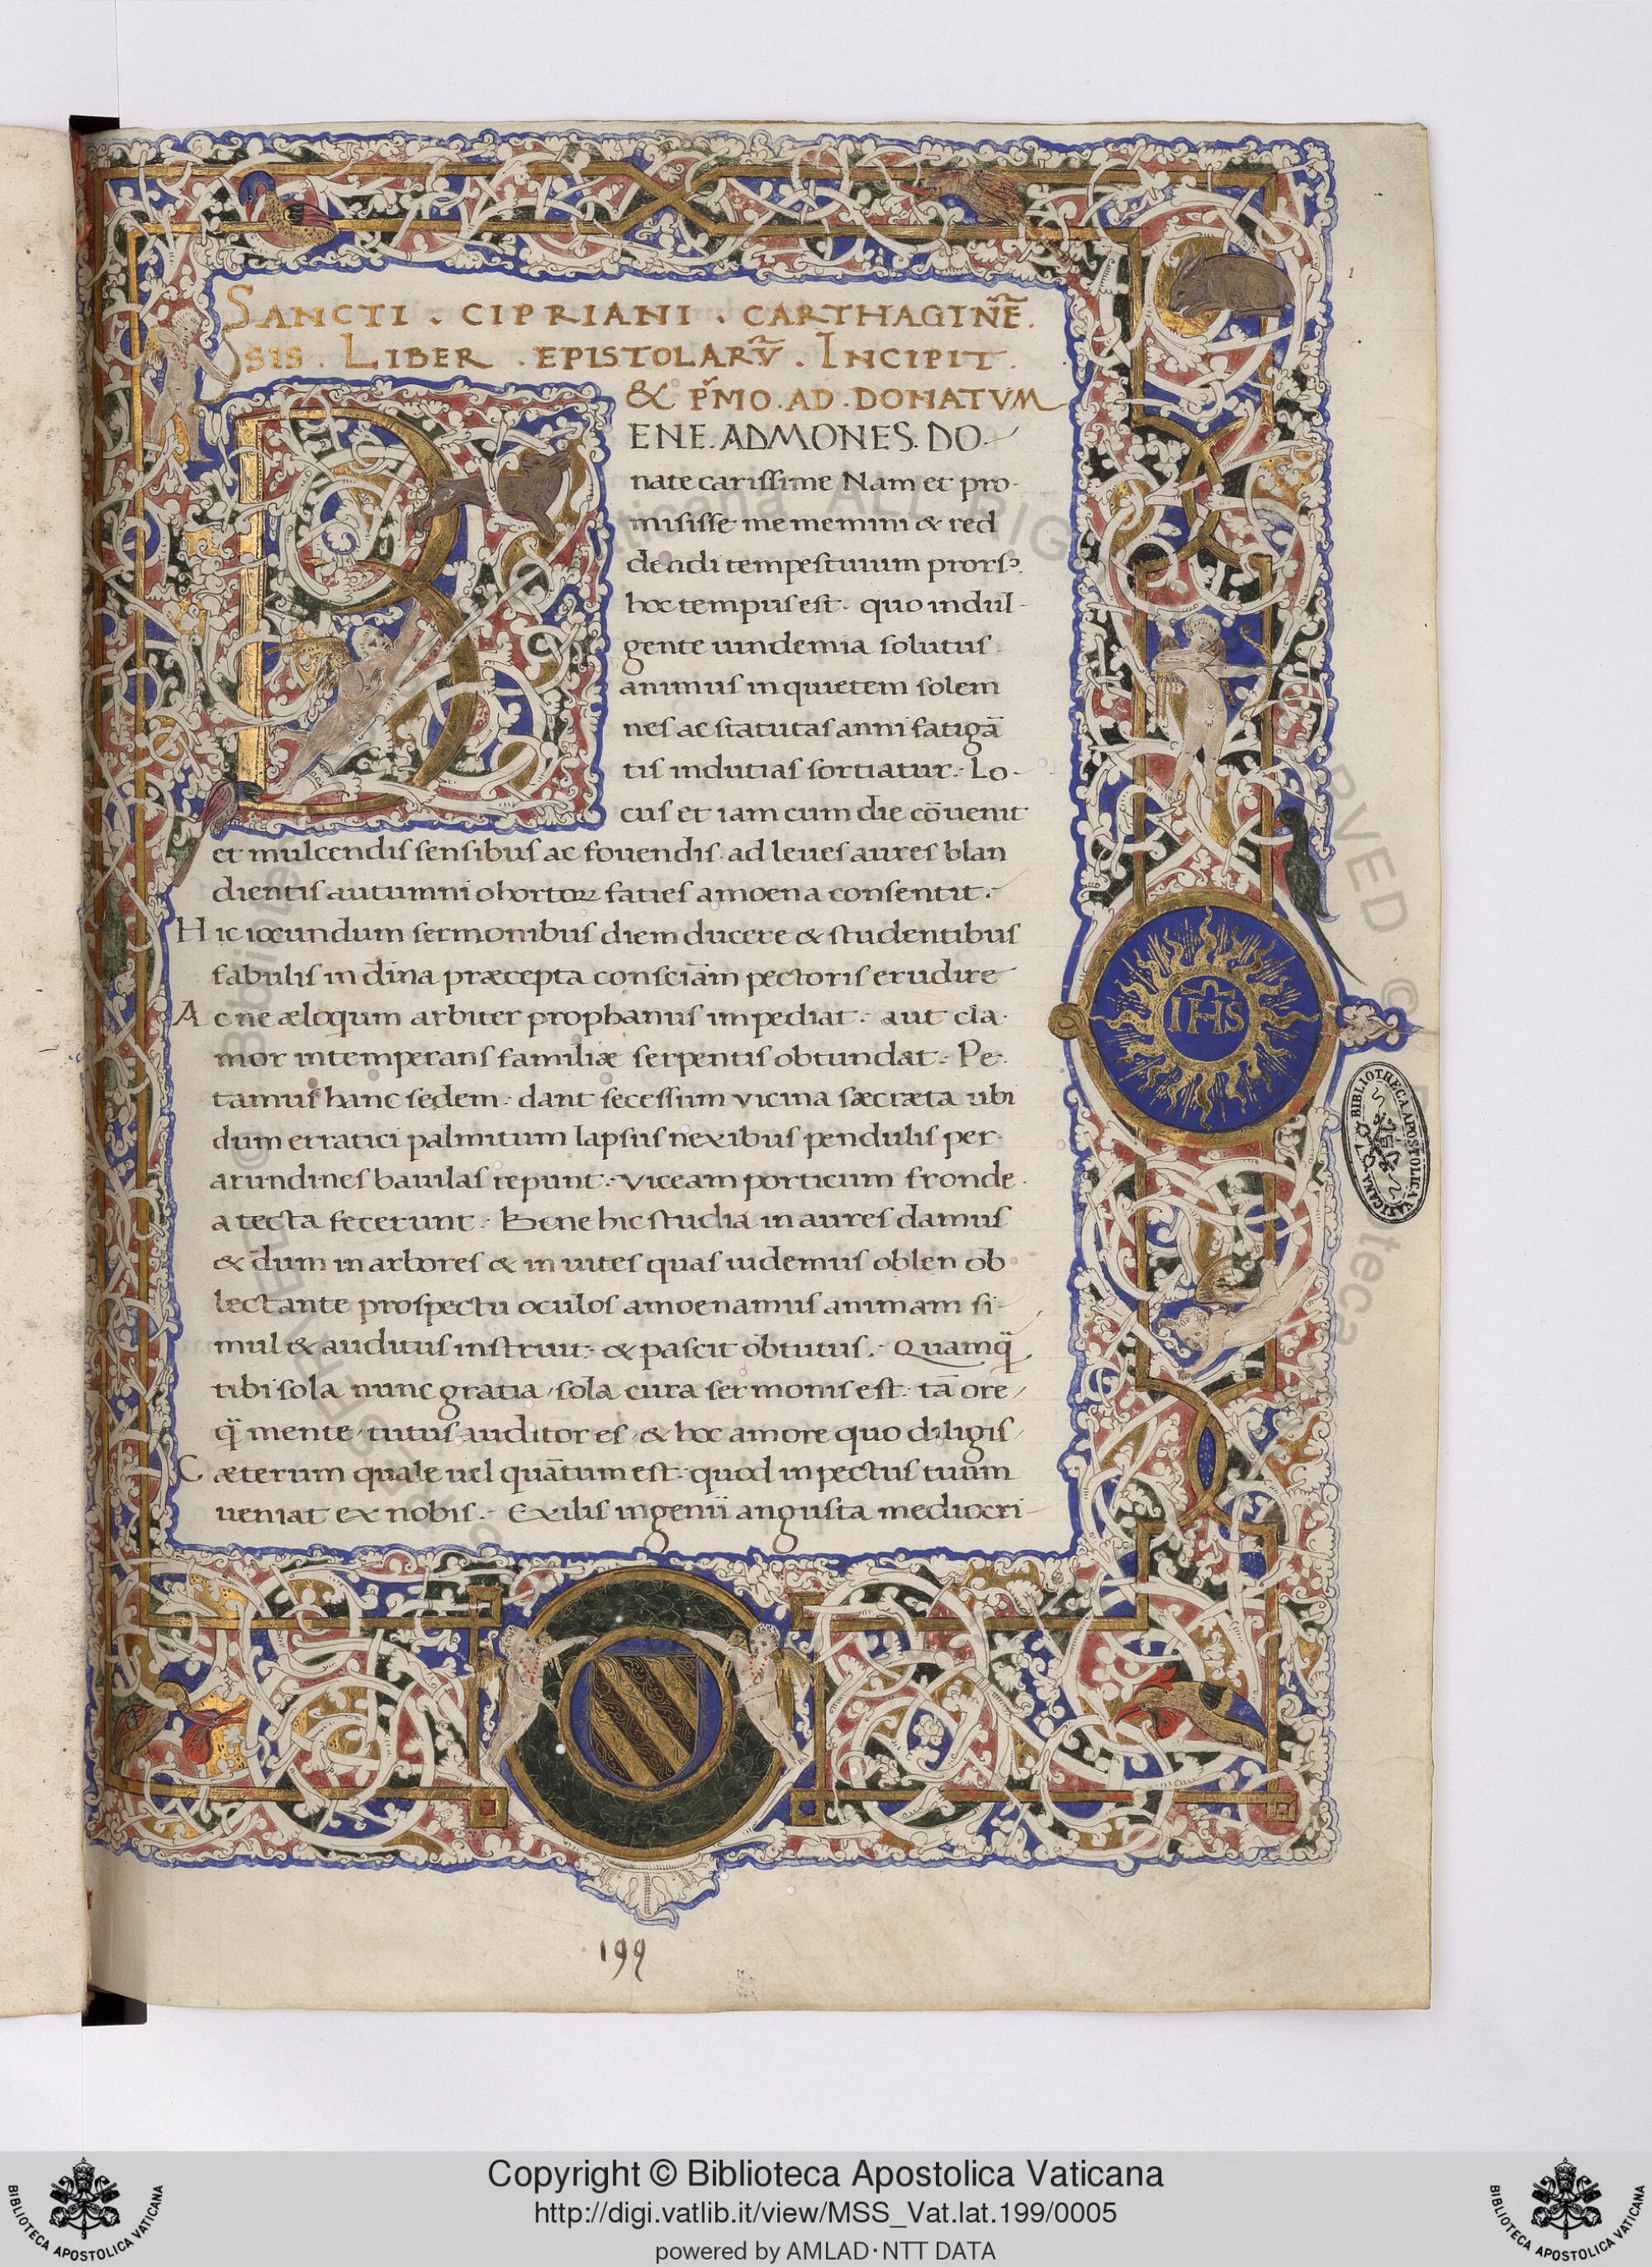 SANCTI . CIPRIANI . CARTHAGINE̅.
SIS . LIBER . EPISTOLARV̅ . INCIPIT .
& P̅MO . AD . DONATVM
BENE. ADMONES. DO-
nate carissime Nam et pro-
misisse me memini & red
dendi tempestiuum prors
hoc tempus est. quo indul-
gente uindemia solutus
animus in quietem solem
nes ac statutas anni fatigā
tis indutias sortiatur. Lo-
cus et iam cum die cōuenit
et mulcendis sensibus ac fouendis. ad leues aures blan
dientis autumni ohortoꝝ faties amoena consentit.
Hic iocundum sermonibus diem ducere & studentibus
fabulis in dīna præcepta consciām pectoris erudire
Ac ne æloqum arbiter prophanus impediat. aut cla-
mor intemperans familiæ serpentis obtundat. Pe-
tamus hanc sedem. dant secessum vicina sæcræta ubi
dum erratici palmitum lapsus nexibus pendulis per
arundines bauilas repunt. viceam porticum fronde
a tecta fecerunt. Bene hic studia in aures damus
& dum in arbores & in uites quas uidemus oblen ob
lectante prospectu oculos amoenamus animam si-
mul & auditus instruit. & pascit obtutus. Quamq̄
tibi sola nunc gratia / sola cura sermonis est. tā ore /
q̄ mente / tutus auditor es / & hoc amore quo diligis /
Cæterum quale uel quātum est. quod in pectus tuum
ueniat ex nobis. Exilis ingenii angusta mediocri-
IHS
BIBLIOTHECA APOSTOLICA VATICANA
199
1
Copyright © Biblioteca Apostolica Vaticana
http://digi.vatlib.it/view/MSS_Vat.lat.199/0005
powered by AMLAD·NTT DATA
BIBLIOTECA APOSTOLICA VATICANA
BIBLIOTECA APOSTOLICA VATICANA